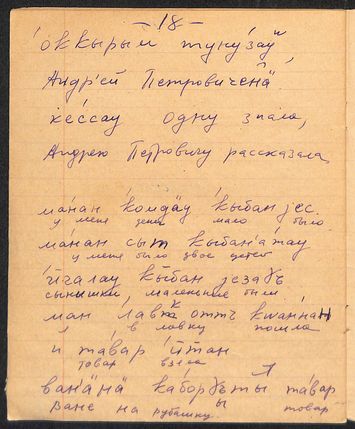 – 18 –
о́ккыры́м тунуза́у
Андре́й Петровиченӓ
ке́ссау одну знала,
Андрею Петровичу рассказала
ма́нан ко́мдӓу кы́бан јес.
у меня денег мало было
ма́нан сыт кыбан'а́жау
у меня было двое детей
и́'га́лау кы́бан је́загъ
сынишки маленькие были
ман ла́вкт оттъ кwанна́н
я в лавку пошла
и та́вар и́тан
товар взяла
ван'ӓ'нӓ ка́борғъты та́вар
Ване на рубашку товар